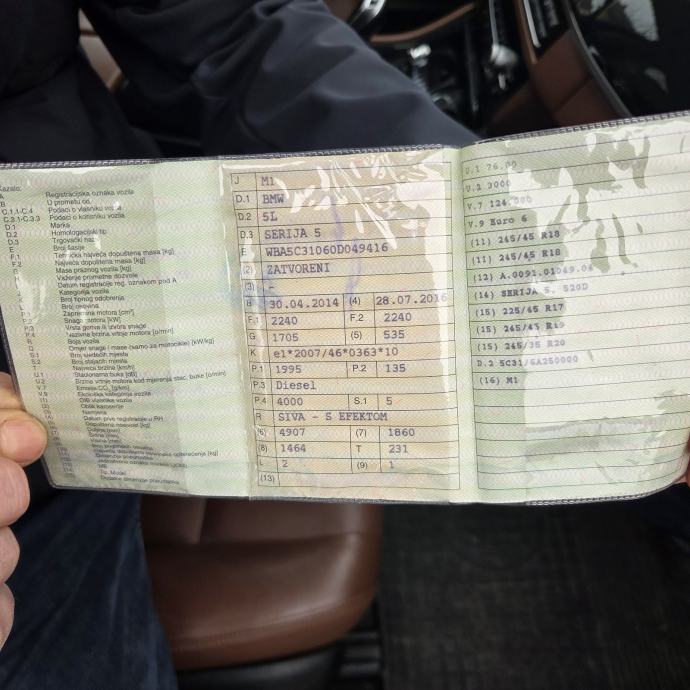 Kazalo:
A Registracijska oznaka vozila
B U prometu od
C.1.1-C.4 Podaci o vlasniku voz
C.3.1-C.3.3 Podaci o korisniku vozila
D.1 Marka
D.2 Homologacijski tip
D.3 Trgovački naziv
E Broj šasije
F.1 Tehnička najveća dopuštena masa [kg]
F.2 Najveća dopuštena masa [kg]
G Masa praznog vozila [kg]
Važenje prometne dozvole
Datum registracije reg. oznakom pod A
Kategorija vozila
Broj tipnog odobrenja
Broj osovina
Zapremina motora [cm³]
Snaga motora [kW]
Vrsta goriva ili izvora snage
Nazivna brzina vrtnje motora [o/min]
Boja vozila
Omjer snage i mase (samo za motocikle) [kW/kg]
Broj sjedećih mjesta
Broj stajaćih mjesta
Najveća brzina [km/h]
Stacionarna buka [dB]
Brzina vrtnje motora kod mjerenja stac. buke [o/min]
V.7
J M1
D.1 BMW
D.2 5L
D.3 SERIJA 5
E WBA5C31060D049416
(2) ZATVORENI
(3) -
B 30.04.2014 (4) 28.07.2016
F.1 2240 F.2 2240
G 1705 (5) 535
K e1*2007/46*0363*10
P.1 1995 P.2 135
P.3 Diesel
P.4 4000 S.1 5
R SIVA - S EFEKTOM
(6) 4907 (7) 1860
(8) 1464 T 231
L 2 (9) 1
(13)
U.1 76.00
U.2 3000
V.7 124.000
V.9 Euro 6
(11) 245/45 R18
(11) 245/45 R18
(12) A.0091.01049.04
(14) SERIJA 5, 520D
(15) 225/55 R17
(15) 245/45 R18
(15) 245/35 R20
D.2 5C31/6A250000
(16) M1